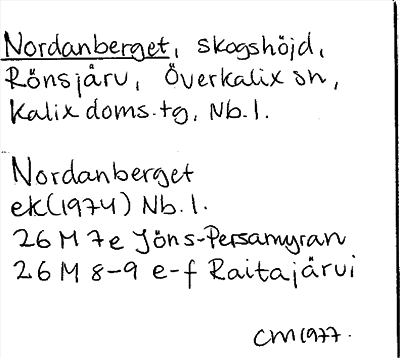 Nordanberget, skogshöjd,
Rönsjärv, Överkalix sn,
Kalix doms.tg, Nb.l.
Nordanberget
ek(1974) Nb.l.
26 M 7e Jöns-Persamyran
26 M 8-9 e-f Raitajärvi
CM1977.